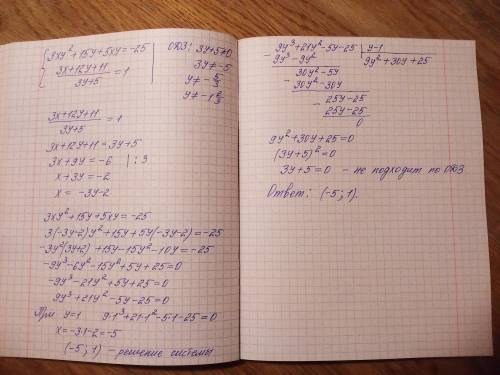 {3xy²+15y+5xy=-25
{(3x+12y+11)/(3y+5)=1
ОДЗ: 3y+5≠0
3y≠-5
y≠-5/3
y≠-1 2/3
(3x+12y+11)/(3y+5)=1
3x+12y+11=3y+5
3x+9y=-6 |:3
x+3y=-2
x=-3y-2
3xy²+15y+5xy=-25
3(-3y-2)y²+15y+5y(-3y-2)=-25
-3y²(3y+2)+15y-15y²-10y=-25
-9y³-6y²-15y²+5y+25=0
-9y³-21y²+5y+25=0
9y³+21y²-5y-25=0
При y=1 9·1³+21·1²-5·1-25=0
x=-3·1-2=-5
(-5; 1) - решение системы
9y³+21y²-5y-25 | y-1
- 9y³-9y² | 9y²+30y+25
30y²-5y
- 30y²-30y
25y-25
- 25y-25
0
9y²+30y+25=0
(3y+5)²=0
3y+5=0 - не подходит по ОДЗ
Ответ: (-5; 1).